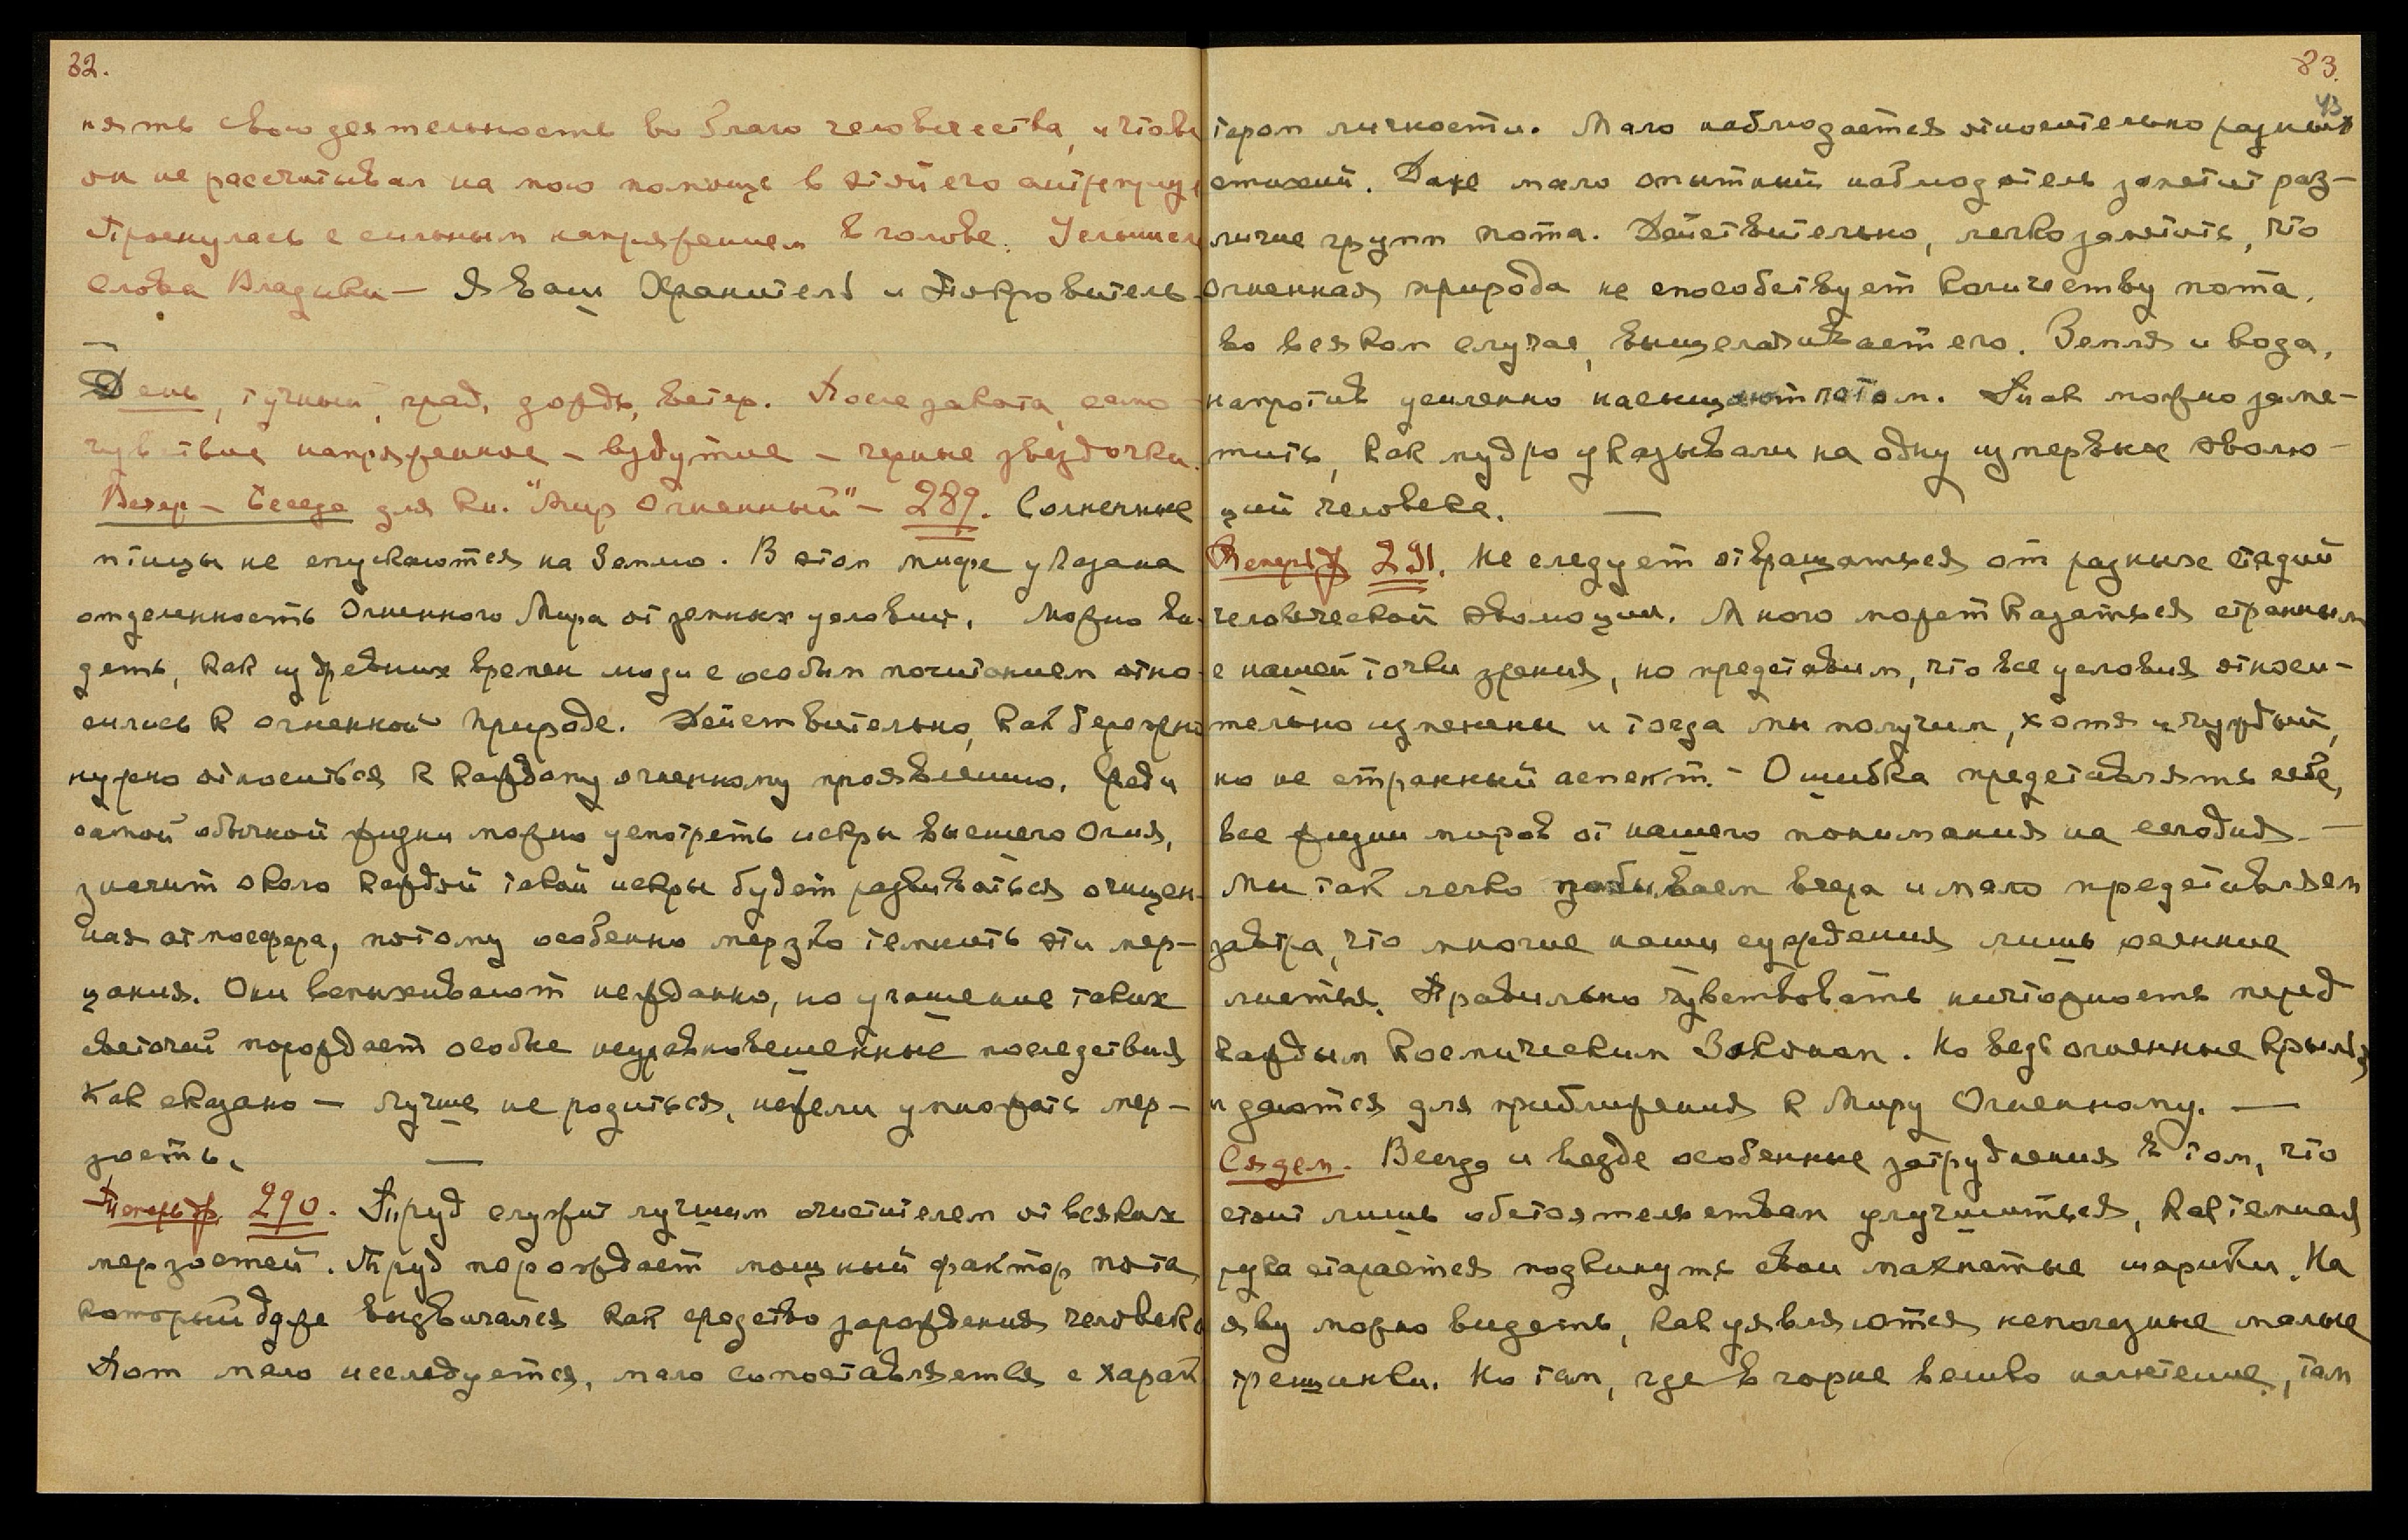 32.
нять свою деятельность во благо человечества, и чтобы
он не рассчитывал на мою помощь в этой его
Проснулась с сильным напряжением в голове. Услышала
слова Владыки — Я ваш Хранитель и Покровитель.
День, тучный, град, дождь, ветер. После заката, само-
чувствие напряженное — вздутие — черные звездочки.
Вечер — Беседа для кн. "Мир Огненный" — 289. Солнечные
птицы не спускаются на Землю. В этом мифе указана
отделенность Огненного Мира от земных условий. Можно ви-
деть, как из древних времен люди с особым почитанием отно-
сились к огненной природе. Действительно, как бережно
нужно относиться к каждому огненному проявлению. Среди
самой обычной жизни можно усмотреть искры высшего Огня,
значит около каждой такой искры будет развиваться очищен-
ная атмосфера, потому особенно мерзко темнить эти мер-
цания. Они вспыхивают нежданно, но угашение таких
светочей порождает особые неуравновешенные последствия
Как сказано — лучше не родиться, нежели умножать мер-
зость.
Теперь ж. 290. Труд служит лучшим очистителем от всяких
мерзостей. Труд порождает мощный фактор пота,
который даже выдвигался как средство зарождения человека
Пот мало исследуется, мало сопоставляется с харак
83.
43
тером личности. Мало наблюдается относительно разных
стихий. Даже мало опытный наблюдатель заметит раз-
личие групп пота. Действительно, легко заметить, что
огненная природа не способствует количеству пота,
во всяком случае, выщелачивает его. Земля и вода,
напротив усиленно насыщают потом. Так можно заме-
тить, как мудро указывали на одну из первых эволю-
ций человека.
Теперь ж 291. Не следует отвращаться от разных стадий
человеческой эволюции. Много может казаться странным
с нашей точки зрения, но представим, что все условия относи-
тельно изменены и тогда мы получим, хотя и чуждый,
но не странный аспект. — Ошибка представлять себе,
все жизни миров от нашего понимания на сегодня. —
Мы так легко забываем вчера и мало представляем
завтра, что многие наши суждения лишь осенние
листья. Правильно чувствовать ничтожность перед
каждым Космическим Законом. Но ведь огненные крылья
и даются для приближения к Миру Огненному. —
Сядем. Всегда и везде особенные затруднения в том, что
стоит лишь обстоятельствам улучшиться, как темная
рука старается подвинуть свои мохнатые шарики. На
яву можно видеть, как уявляются неполезные малые
трещинки. Но там, где в горне велико напряжение, там